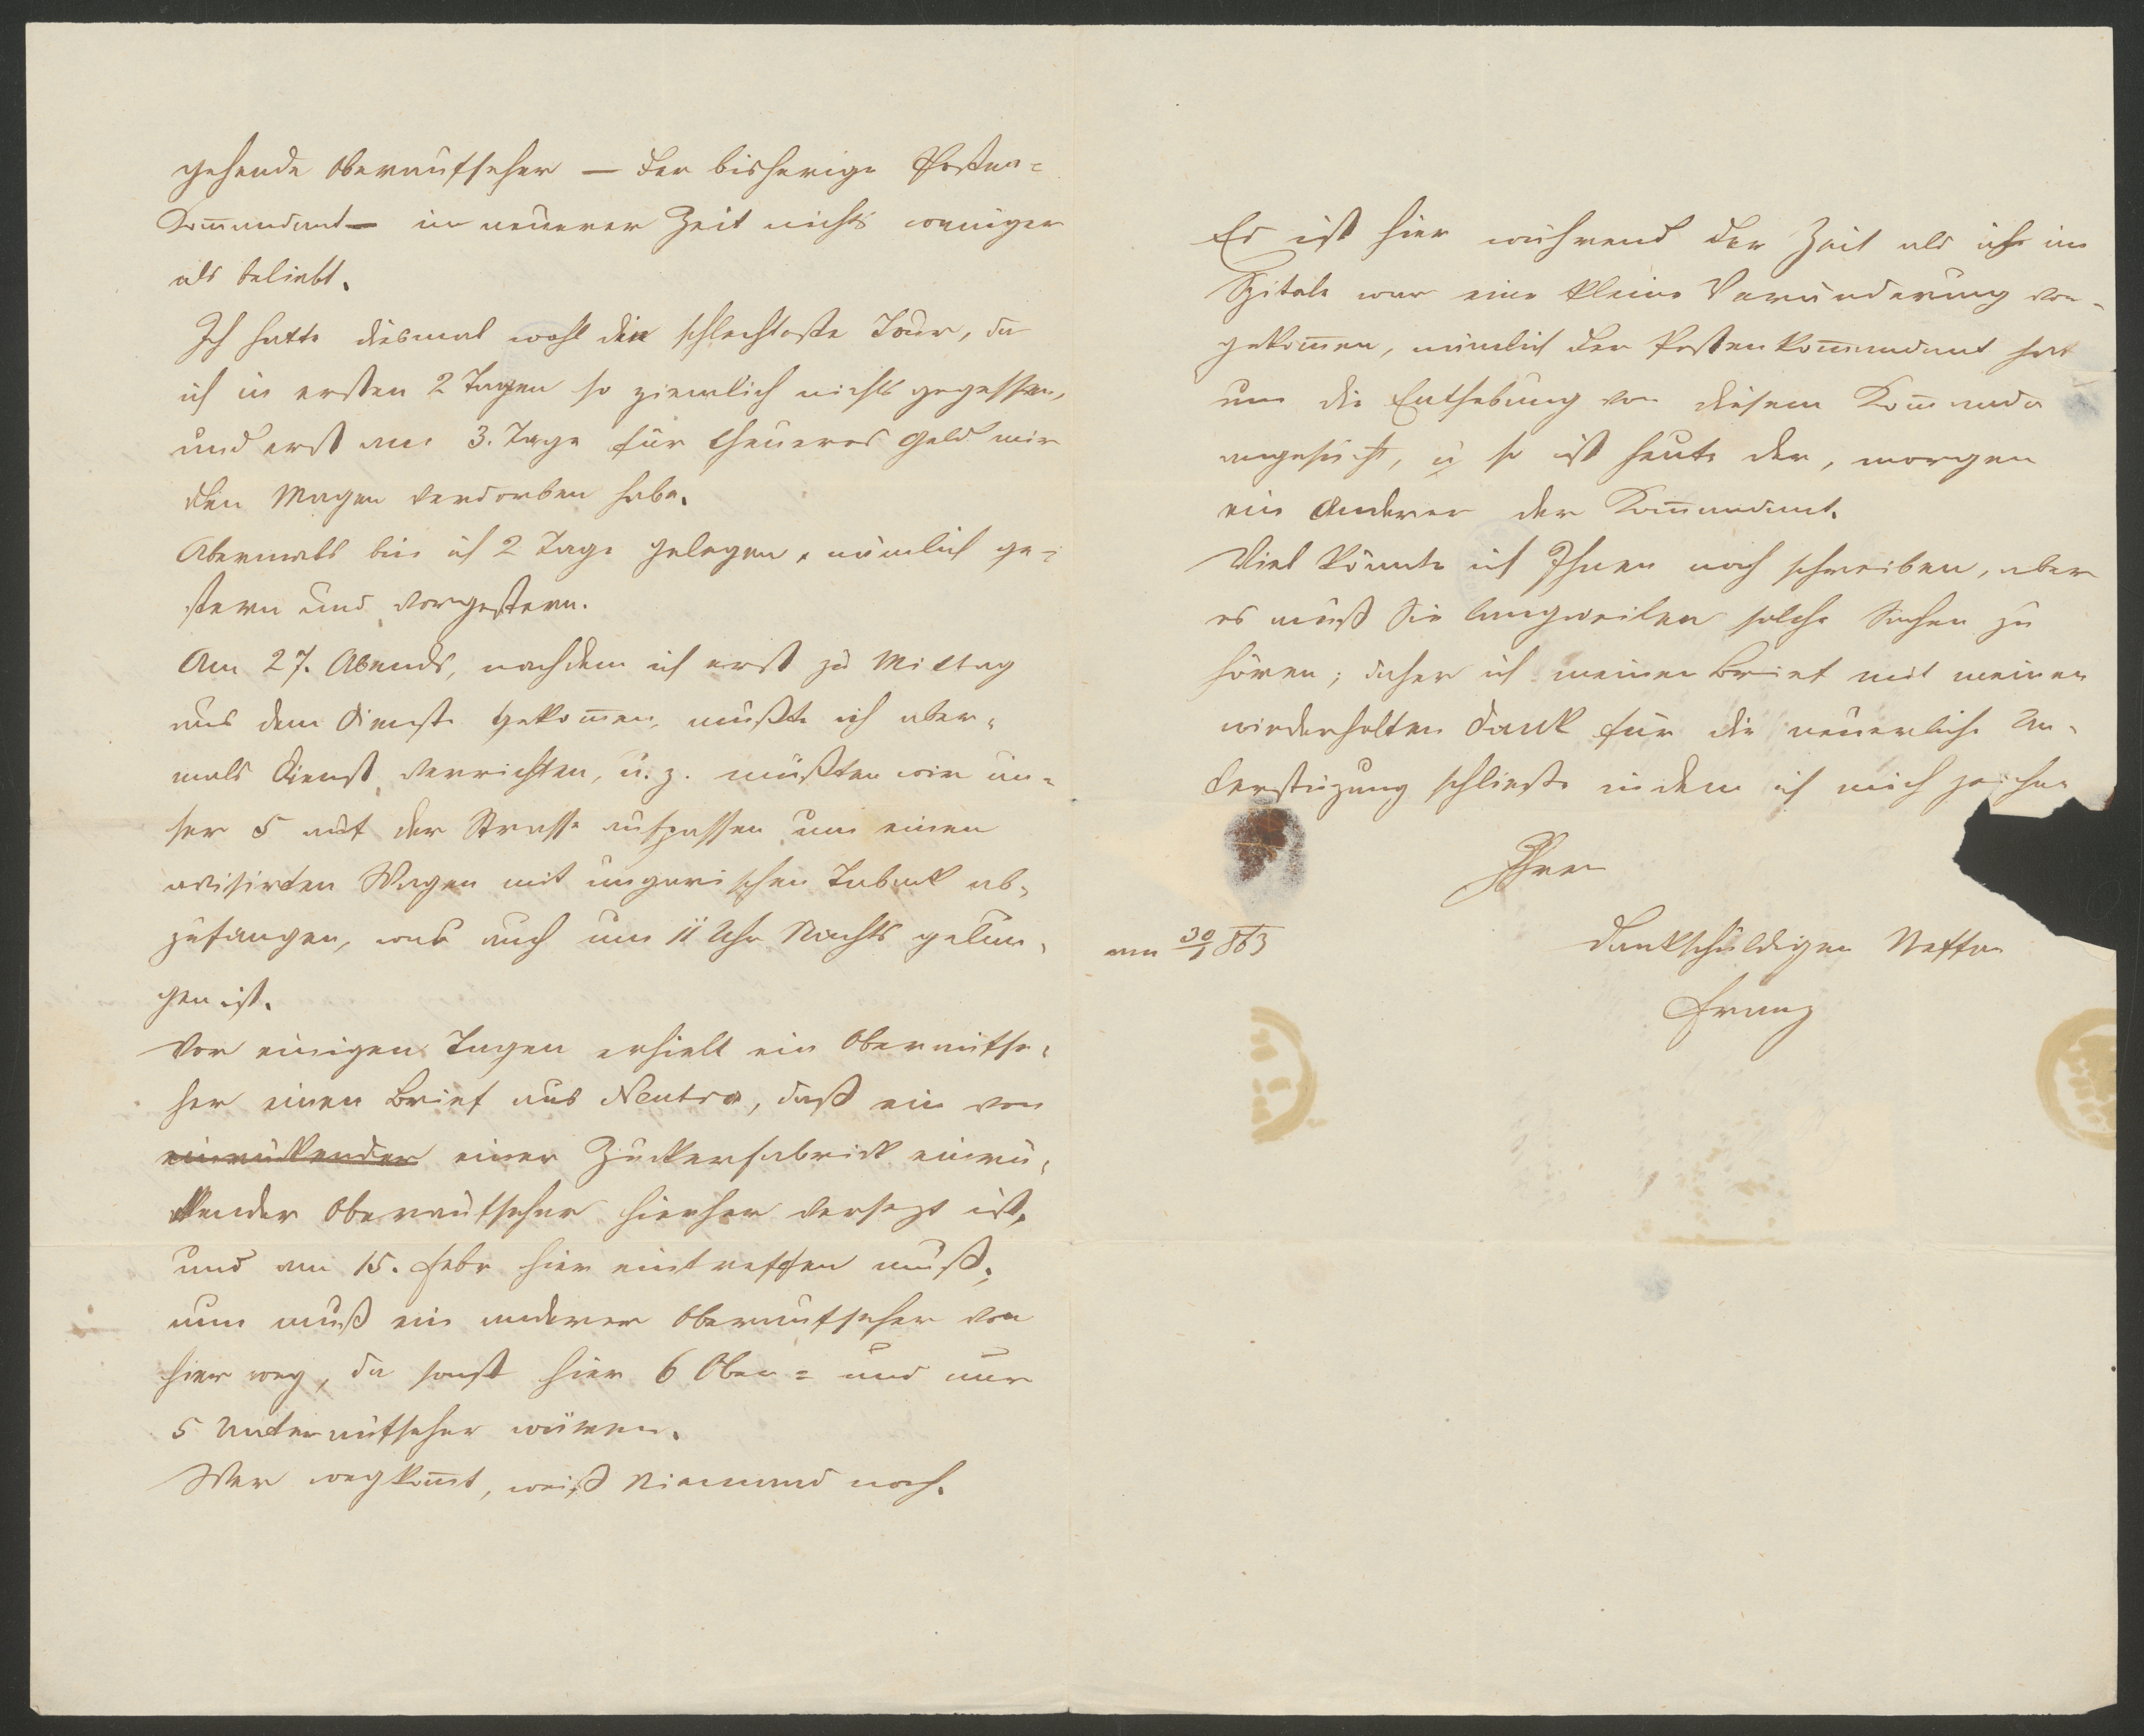 gehende Oberaufseher — der bisherige Posten=
Kom̄andant — in neuerer Zeit nichts weniger
als beliebt.
Ich hatte diesmal wohl die schlechteste Tour, da
ich in ersten 2 Tagen so ziemlich nichts gegessen,
und erst am 3. Tage für theueres Geld mir
den Magen verdorben habe.
Abermals bin ich 2 Tage gelegen, nämlich ge-
stern und vorgestern.
Am 27. Abends, nachdem ich erst zu Mittag
aus dem Dienste gekom̄en, mußte ich aber-
mals Dienst verrichten, u. z. mußten wir un-
ser 5 auf der Strasse aufpassen um einen
avisirten Wagen mit ungarischen Taback ab-
zufangen, was auch um 11 Uhr Nachts gelun-
gen ist.
Vor einigen Tagen erhielt ein Oberaufse-
her einen Brief aus Neutra, daß ein von
einrückender einer Zuckerfabrick einrü-
ckender Oberaufseher hierher versezt ist,
und am 15. Febr hier eintreffen muß;
nun muß ein anderer Oberaufseher von
hier weg, da sonst hier 6 Ober= und nur
5 Unteraufseher wären.
Wer wegkom̄t, weiß Niemand noch.
Es ist hier während der Zeit als ich im
Spitale war eine kleine Veränderung vor-
gekom̄en, nämlich der Postenkom̄andant hat
um die Enthebung von diesem Kom̄ando
angesucht, u so ist heute der, morgen
ein Anderer der Kom̄andant.
Viel könnte ich Ihnen noch schreiben, aber
es muß Sie langweilen solche Sachen zu
hören; daher ich meinen Brief mit meinen
wiederholten Dank für die neuerliche Un-
terstüzung schließe indem ich mich zeichne
Ihr
dankschuldiger Neffe
am 30/1 863
Franz